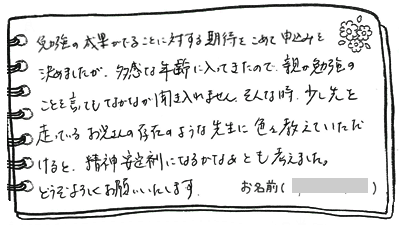 勉強の成果がでることに対する期待をこめて申込みを
決めましたが、多感な年齢に入ってきたので、親が勉強の
ことを言ってもなかなか聞き入れません。そんな時、少し先を
走っているお兄さんの存在のような先生に色々教えていただ
けると、精神安定剤になるかなぁとも考えました。
どうぞよろしくお願いいたします。 お名前( )